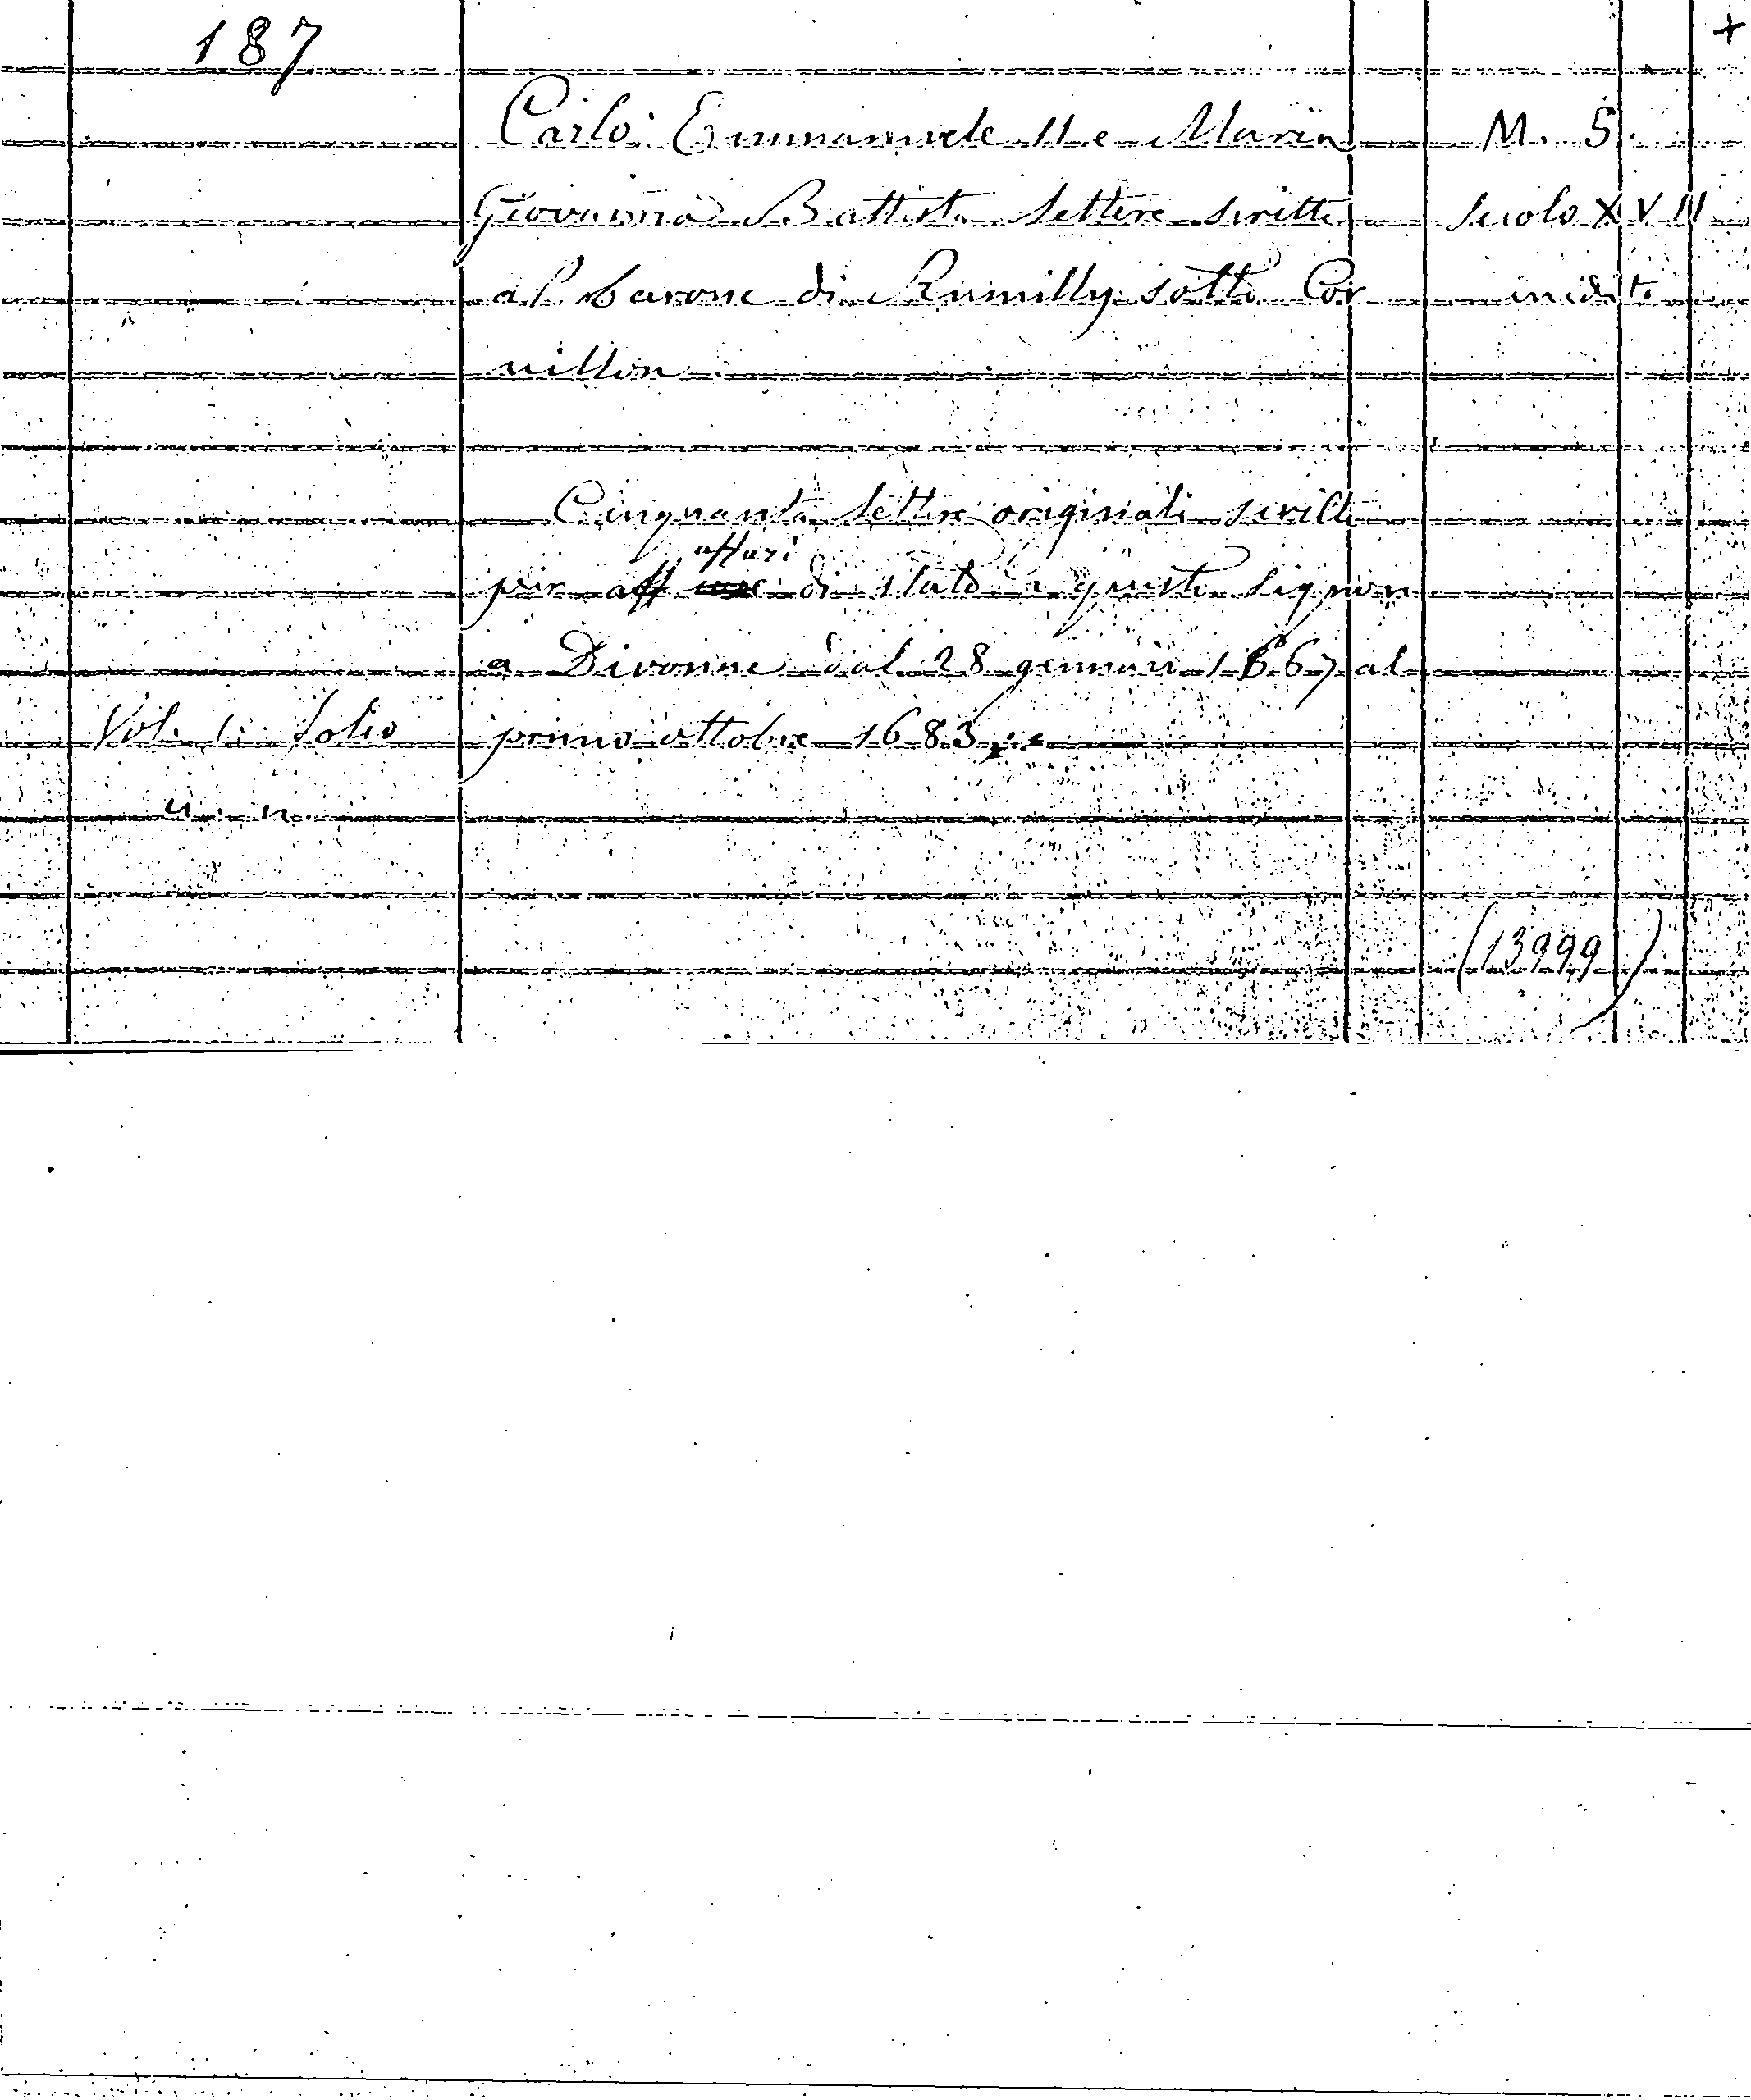 187
+
Carlo Emmanuele II e Maria
M. S.
Giovanna Battista lettere scritte
Secolo XVII
al barone di Rumilly sotto Cor
inedito
nillon
Cinquanta lettere originali scritte
affari
per aff di stato a questo signore
a Divonne dal 28 gennaio 1667 al
Vol. 1. folio
primo ottobre 1683
n. n.
(13999)